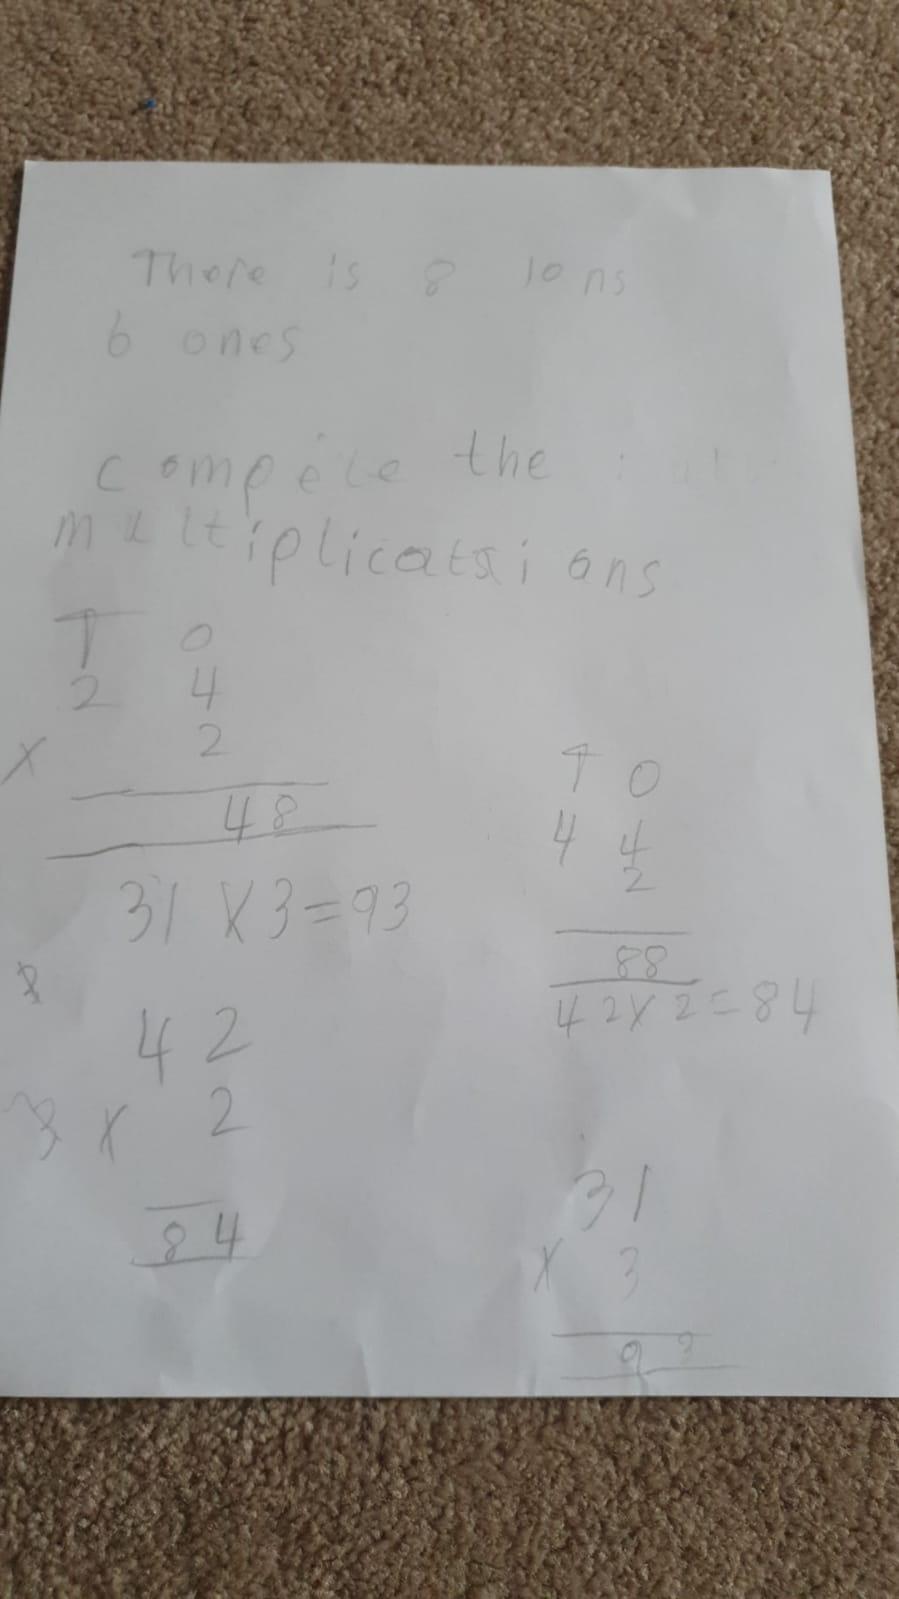 There is 8 10ns
6 ones
compete the
multiplications
T O
2 4
x 2
48
31 x 3 = 93
42
x 2
84
T O
4 4
2
88
42 x 2 = 84
31
x 3
93